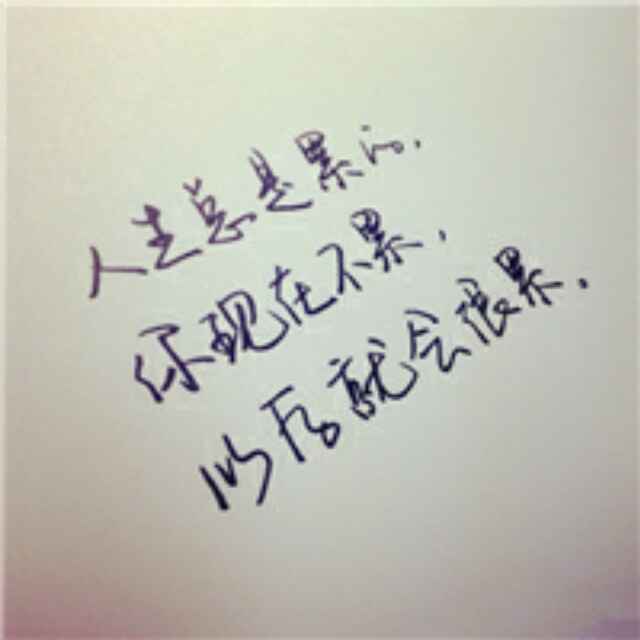 人生总是累的.
你现在不累,
以后就会很累.